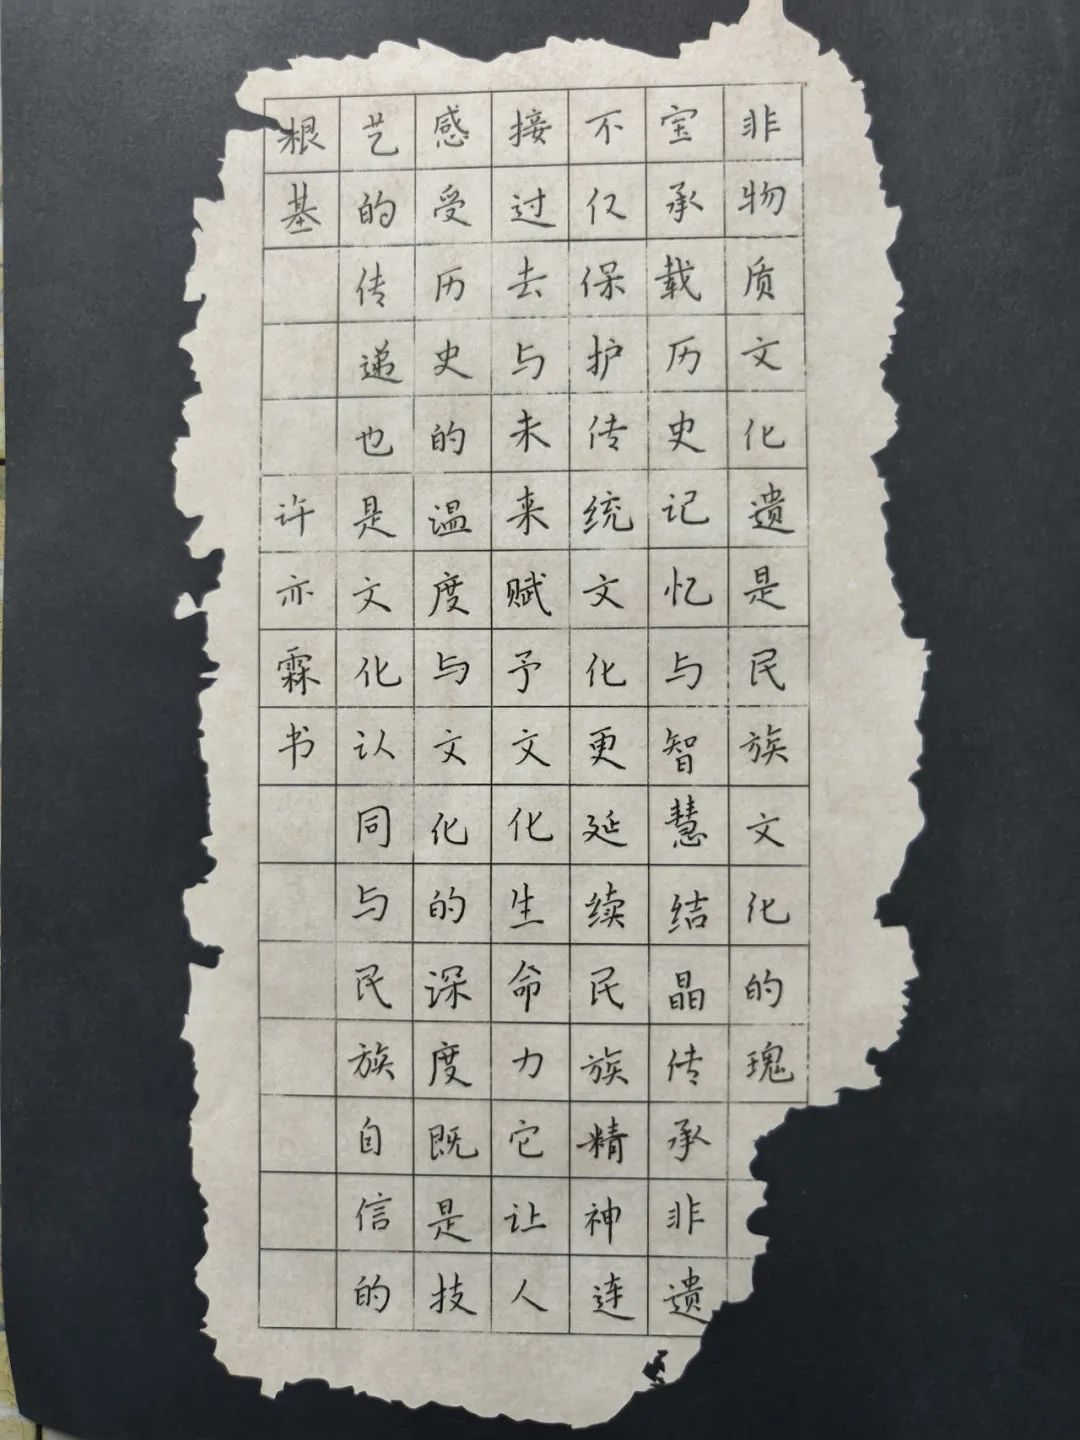 非物质文化遗是民族文化的瑰
宝承载历史记忆与智慧结晶传承非遗
不仅保护传统文化更延续民族精神连
接过去与未来赋予文化生命力它让人
感受历史的温度与文化的深度既是技
艺的传递也是文化认同与民族自信的
根基
许亦霖书